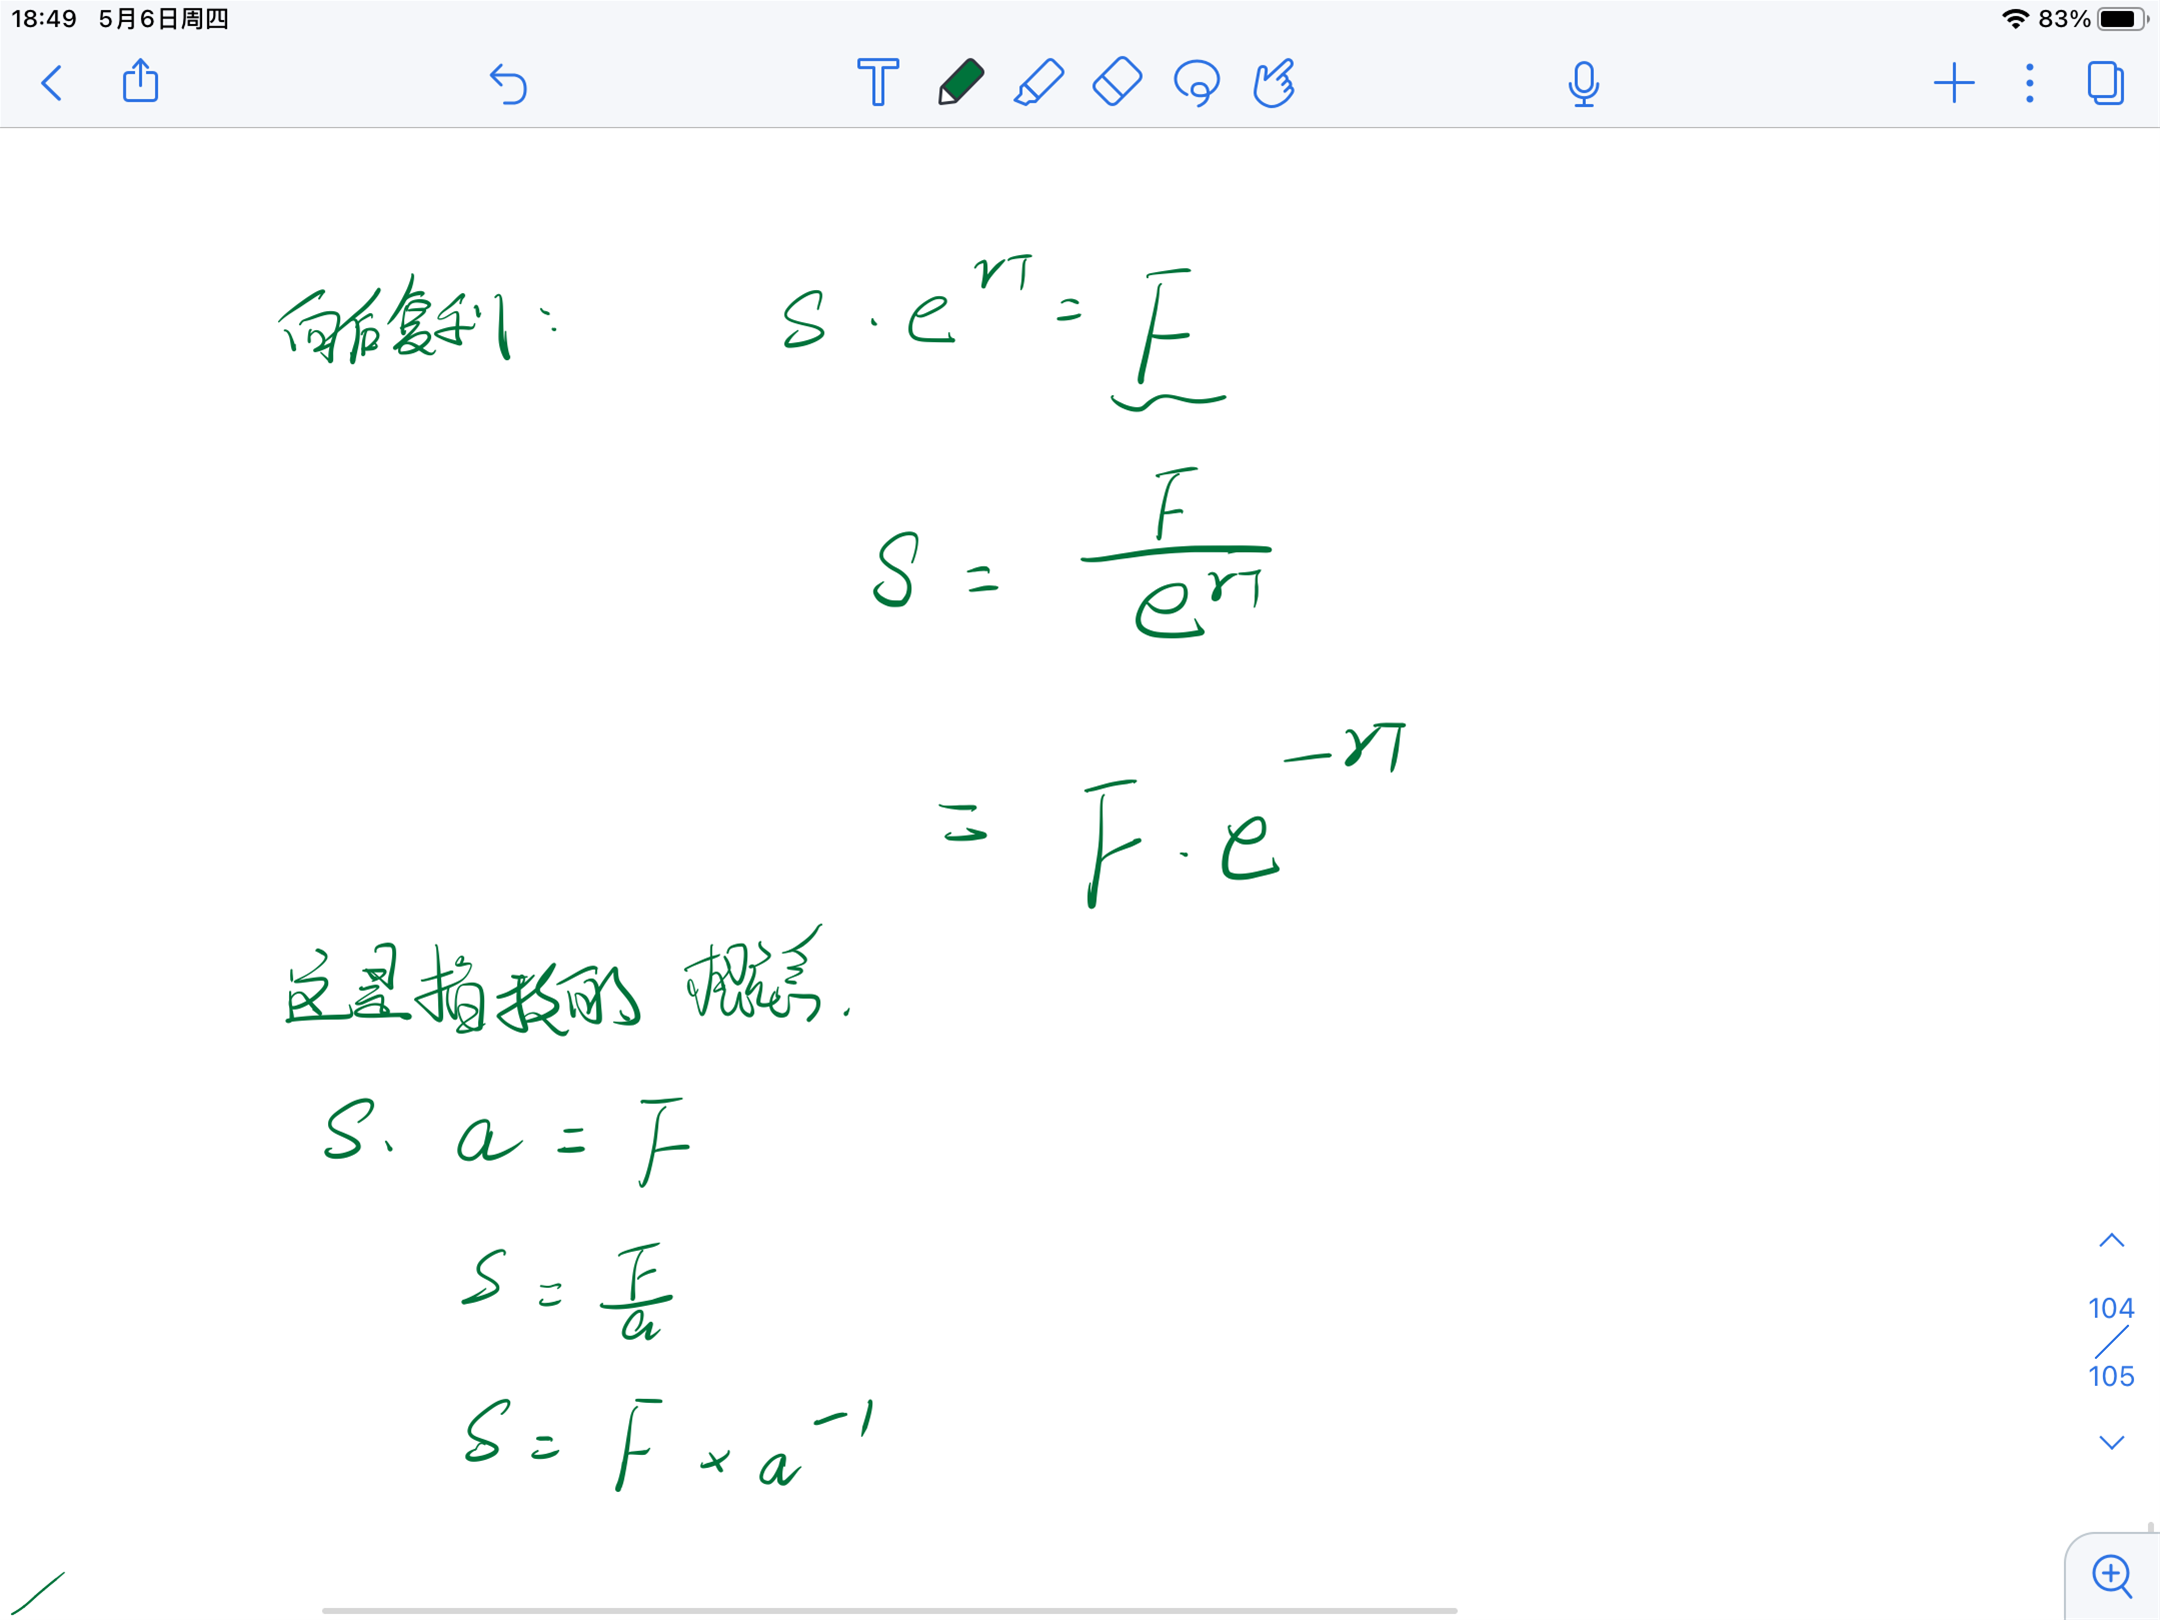 18:49 5月6日周四 83%
向后复利: S · e^{rT} = F
S = F / e^{rT}
= F · e^{-rT}
这是指数的概念.
S · a = F
S = F / a
S = F × a^{-1}
104
/
105